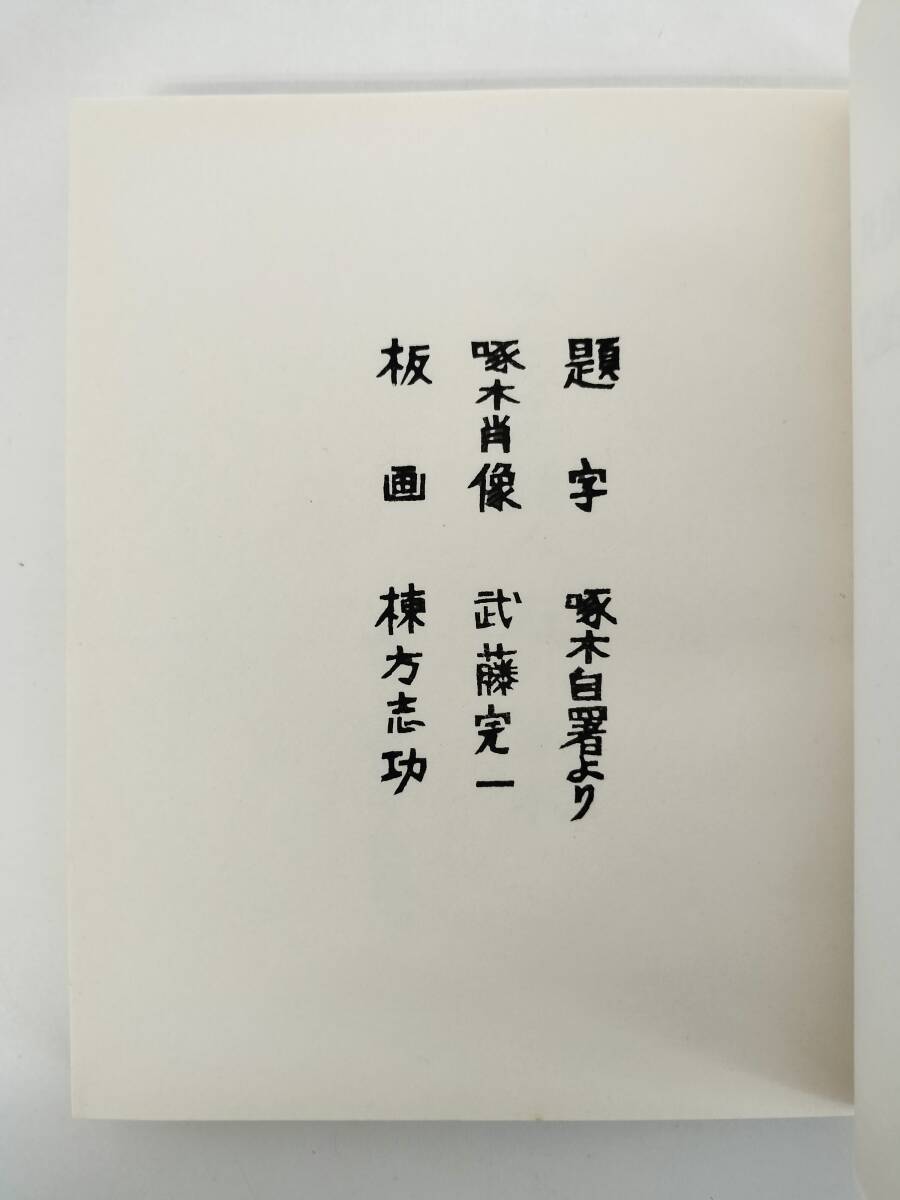 題字 啄木自署より
啄木肖像 武藤完一
板画 棟方志功